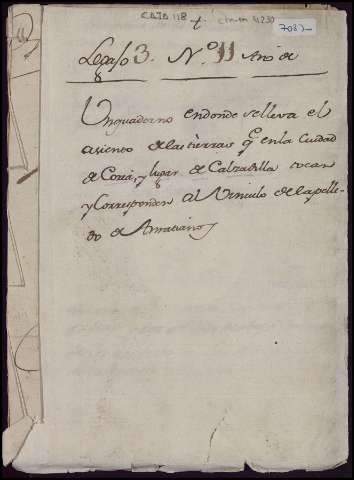 CAJA 118
7087
Legajo 3. N.º 11 Ano de
Un quaderno en donde se lleva el
asiento de las tierras q.e en la Ciudad
de Coria, y lugar de Calzadilla tocan
y Corresponden al Vinculo de la pelle-
do de Amarianos